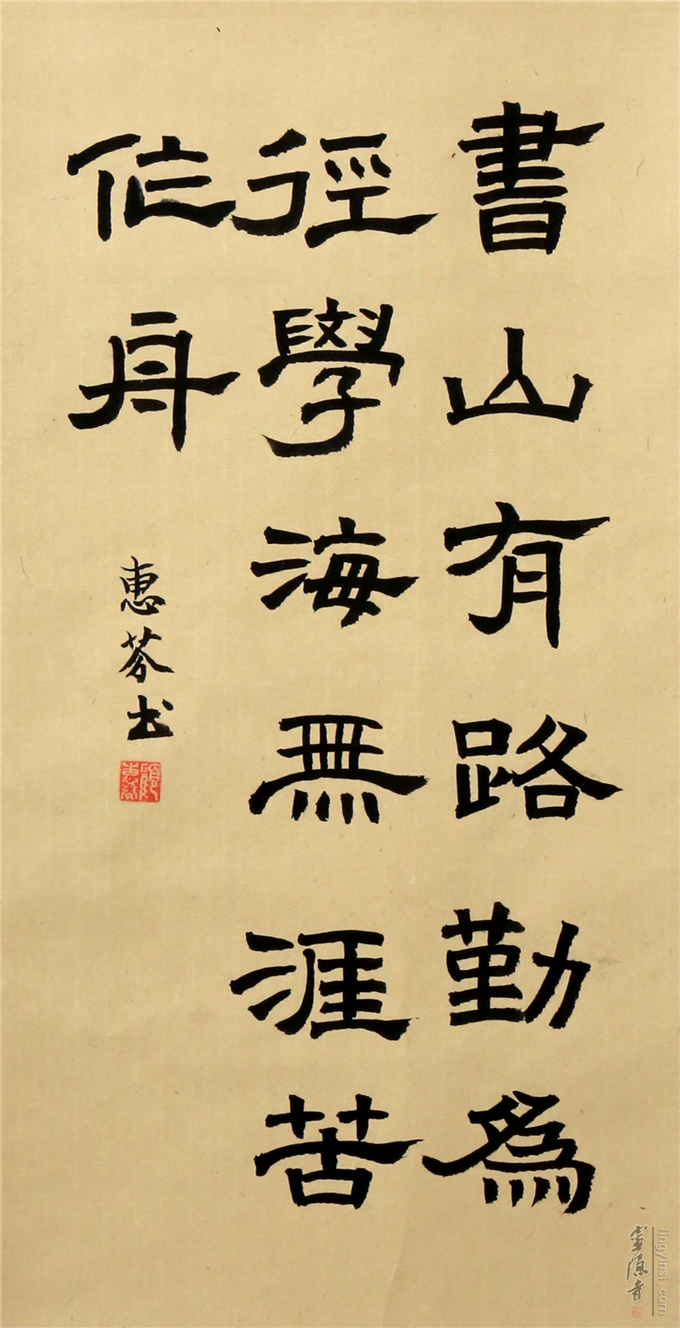 書山有路勤為
徑學海無涯苦
作舟
惠芬书
靈隱寺
lingyinsi.com